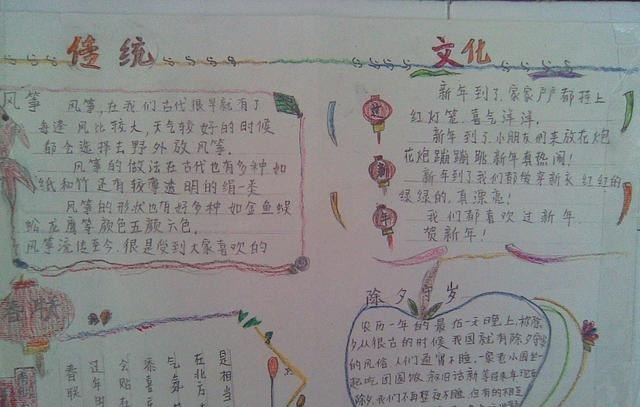 传统
文化
风筝
风筝,在我们古代很早就有了
每逢风比较大,天气较好的时候
都会选择去野外放风筝.
风筝的做法在古代也有多种如
纸和竹还有较薄透明的绢一类
风筝的形状也有好多种如金鱼蜈
蚣龙鹰等颜色五颜六色.
风筝流传至今.很是受到大家喜欢的
新年到了,家家户户都挂上
红灯笼.喜气洋洋.
新年到了小朋友们来放花炮
花炮蹦蹦跳新年真热闹!
新年到了我们都能穿新衣红红的
绿绿的.真漂亮!
我们都喜欢过新年
贺新年!
过
新
年
除夕守岁
农历一年的最后一天晚上,被称除
夕从很古的时候我国就有除夕守岁
的风俗人们通宵不睡一家老小围坐一
起吃团圆饭叙旧话新等待来年
除夕我们不再整夜不睡但有的
春联
是相当
在北方
气氛
添喜
会贴
过年
春联